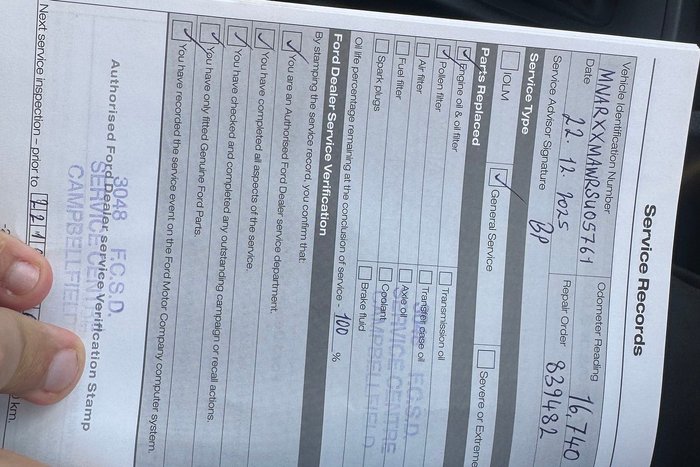 Service Records
Vehicle Identification Number
Odometer Reading
16,740
Date
22.12.2025
Repair Order
839482
Service Advisor Signature
BP
Service Type
IOLM
✓ General Service
Severe or Extreme
Parts Replaced
✓ Engine oil & oil filter
Transmission oil
✓ Pollen filter
Transfer case oil
Air filter
Axle oil
Fuel filter
Coolant
Spark plugs
Brake fluid
Oil life percentage remaining at the conclusion of service - 100 %
3048 F.C.S.D
SERVICE CENTRE
CAMPBELLFIELD
Ford Dealer Service Verification
By stamping the service record, you confirm that:
✓ You are an Authorised Ford Dealer service department.
✓ You have completed all aspects of the service.
✓ You have checked and completed any outstanding campaign or recall actions.
✓ You have only fitted Genuine Ford Parts.
✓ You have recorded the service event on the Ford Motor Company computer system.
3048 F.C.S.D
Authorised Ford Dealer service Verification Stamp
SERVICE CEN
CAMPBELLFIELD
Next service inspection – prior to
km.